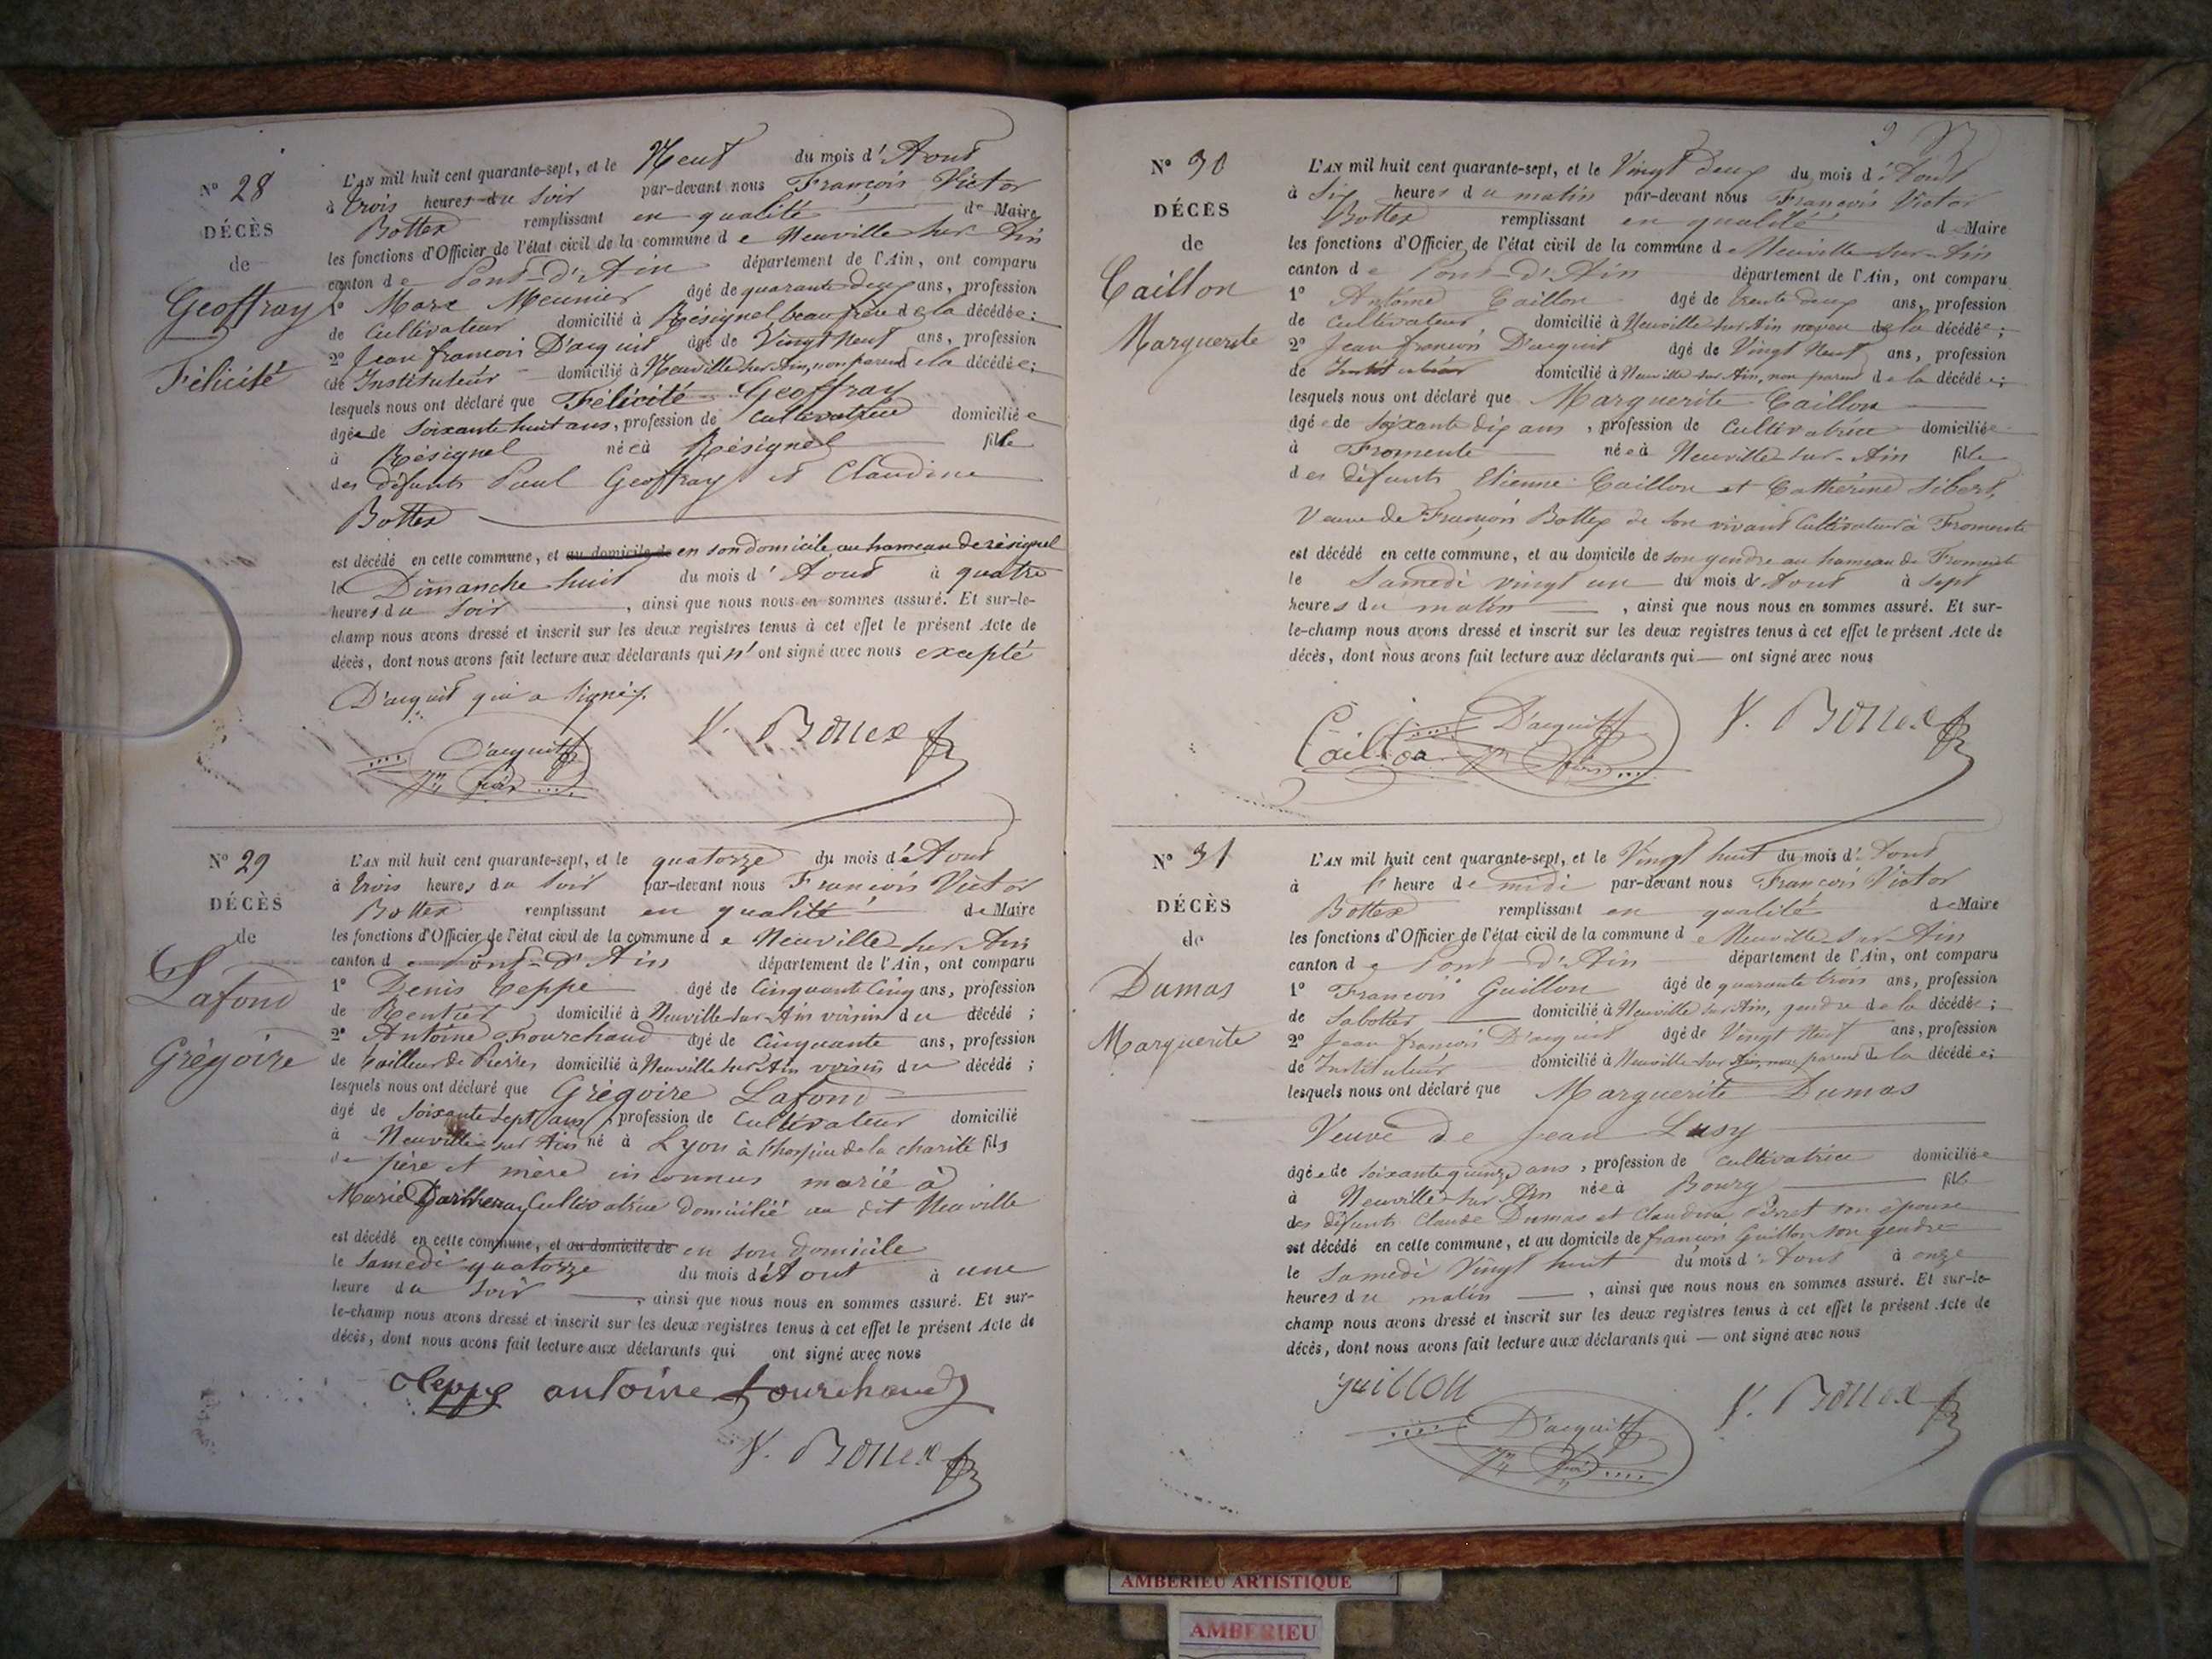 N° 28
DÉCÈS
de
Geoffray
Félicité
L'AN mil huit cent quarante-sept, et le Neuf du mois d'Aout
à trois heures du soir par-devant nous François Victor
Bottex remplissant en qualité de Maire
les fonctions d'Officier de l'état civil de la commune de Neuville sur Ain
canton de Pont-d'Ain département de l'Ain, ont comparu
1° Marc Meunier âgé de quarante deux ans, profession
de Cultivateur domicilié à Résignel beau frère de la décédée;
2° Jean françois D'acquit âgé de Vingt Neuf ans, profession
de Instituteur domicilié à Neuville sur Ain, non parent de la décédée;
lesquels nous ont déclaré que Félicité Geoffray
âgée de soixante huit ans, profession de Cultivatrice domiciliée
à Résignel née à Résignel fille
des défunts Paul Geoffray et Claudine
Bottex
est décédé en cette commune, et au domicile de en son domicile au hameau de résignel
le Dimanche huit du mois d'Aout à quatre
heures du soir, ainsi que nous nous en sommes assuré. Et sur-le-
champ nous avons dressé et inscrit sur les deux registres tenus à cet effet le présent Acte de
décès, dont nous avons fait lecture aux déclarants qui n'ont signé avec nous excepté
D'acquit qui a signé.
D'acquit
V. Bottex
N° 29
DÉCÈS
de
Lafond
Grégoire
L'AN mil huit cent quarante-sept, et le quatorze du mois d'Aout
à trois heures du soir par-devant nous François Victor
Bottex remplissant en qualité de Maire
les fonctions d'Officier de l'état civil de la commune de Neuville sur Ain
canton de Pont-d'Ain département de l'Ain, ont comparu
1° Denis Ceppe âgé de Cinquante Cinq ans, profession
de Rentier domicilié à Neuville sur Ain voisin du décédé;
2° Antoine Fourchaud âgé de Cinquante ans, profession
de tailleur de Pierres domicilié à Neuville sur Ain voisin du décédé;
lesquels nous ont déclaré que Grégoire Lafond
âgé de soixante sept ans, profession de Cultivateur domicilié
à Neuville sur Ain né à Lyon à l'hospice de la charité fils
de père et mère inconnus marié à
Marie Cultivatrice domicilié au dit Neuville
est décédé en cette commune, et au domicile de en son domicile
le samedi quatorze du mois d'Aout à une
heure du soir, ainsi que nous nous en sommes assuré. Et sur-
le-champ nous avons dressé et inscrit sur les deux registres tenus à cet effet le présent Acte de
décès, dont nous avons fait lecture aux déclarants qui ont signé avec nous
Ceppe antoine fourchaud
V. Bottex
N° 30
DÉCÈS
de
Caillon
Marguerite
L'AN mil huit cent quarante-sept, et le Vingt deux du mois d'Aout
à six heures du matin par-devant nous François Victor
Bottex remplissant en qualité de Maire
les fonctions d'Officier de l'état civil de la commune de Neuville-sur-Ain
canton de Pont-d'Ain département de l'Ain, ont comparu
1° Antoine Caillon âgé de trente deux ans, profession
de Cultivateur domicilié à Neuville sur Ain neveu de la décédée;
2° Jean françois D'acquit âgé de Vingt Neuf ans, profession
de Instituteur domicilié à Neuville sur Ain, non parent de la décédée;
lesquels nous ont déclaré que Marguerite Caillon
âgée de soixante dix ans, profession de Cultivatrice domiciliée
à Fromente née à Neuville-sur-Ain fille
des défunts Etienne Caillon et Catherine Sibert,
Veuve de François Bottex de son vivant Cultivateur à Fromente
est décédé en cette commune, et au domicile de son gendre au hameau de Fromente
le samedi vingt un du mois d'Aout à sept
heures du matin, ainsi que nous nous en sommes assuré. Et sur-
le-champ nous avons dressé et inscrit sur les deux registres tenus à cet effet le présent Acte de
décès, dont nous avons fait lecture aux déclarants qui — ont signé avec nous
Caillon D'acquit V. Bottex
N° 31
DÉCÈS
de
Dumas
Marguerite
L'AN mil huit cent quarante-sept, et le Vingt huit du mois d'Aout
à l'heure de midi par-devant nous François Victor
Bottex remplissant en qualité de Maire
les fonctions d'Officier de l'état civil de la commune de Neuville sur Ain
canton de Pont-d'Ain département de l'Ain, ont comparu
1° François Guillon âgé de quarante trois ans, profession
de Sabotier domicilié à Neuville sur Ain, gendre de la décédée;
2° Jean françois D'acquit âgé de Vingt Neuf ans, profession
de Instituteur domicilié à Neuville sur Ain, non parent de la décédée;
lesquels nous ont déclaré que Marguerite Dumas
Veuve de Jean Lusy
âgée de soixante quinze ans, profession de cultivatrice domiciliée
à Neuville sur Ain née à Bourg fille
des défunts Claude Dumas et Claudine Perret son épouse
est décédé en cette commune, et au domicile de françois Guillon son gendre
le samedi Vingt huit du mois d'Aout à onze
heures du matin, ainsi que nous nous en sommes assuré. Et sur-le-
champ nous avons dressé et inscrit sur les deux registres tenus à cet effet le présent Acte de
décès, dont nous avons fait lecture aux déclarants qui — ont signé avec nous
guillon
D'acquit
V. Bottex
AMBERIEU ARTISTIQUE
AMBERIEU